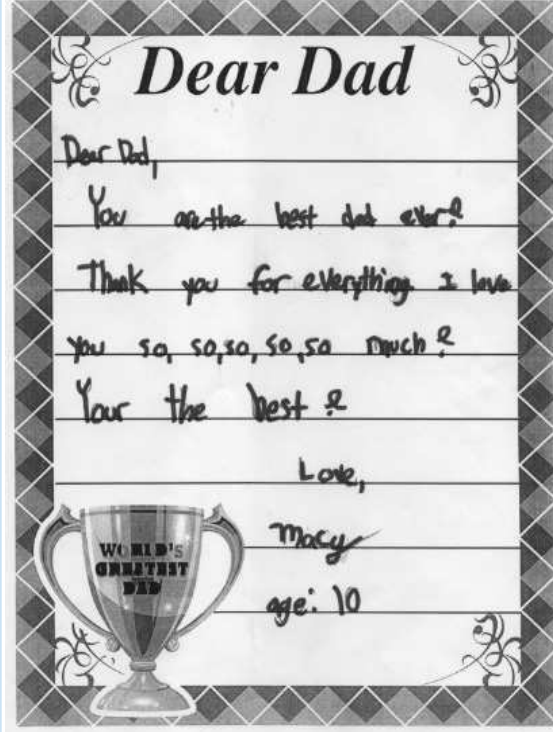 Dear Dad
Dear Dad,
You are the best dad ever!
Thank you for everything I love
you so, so, so, so, so much!
Your the best!
Love,
Macy
age: 10
WORLD'S
GREATEST
DAD